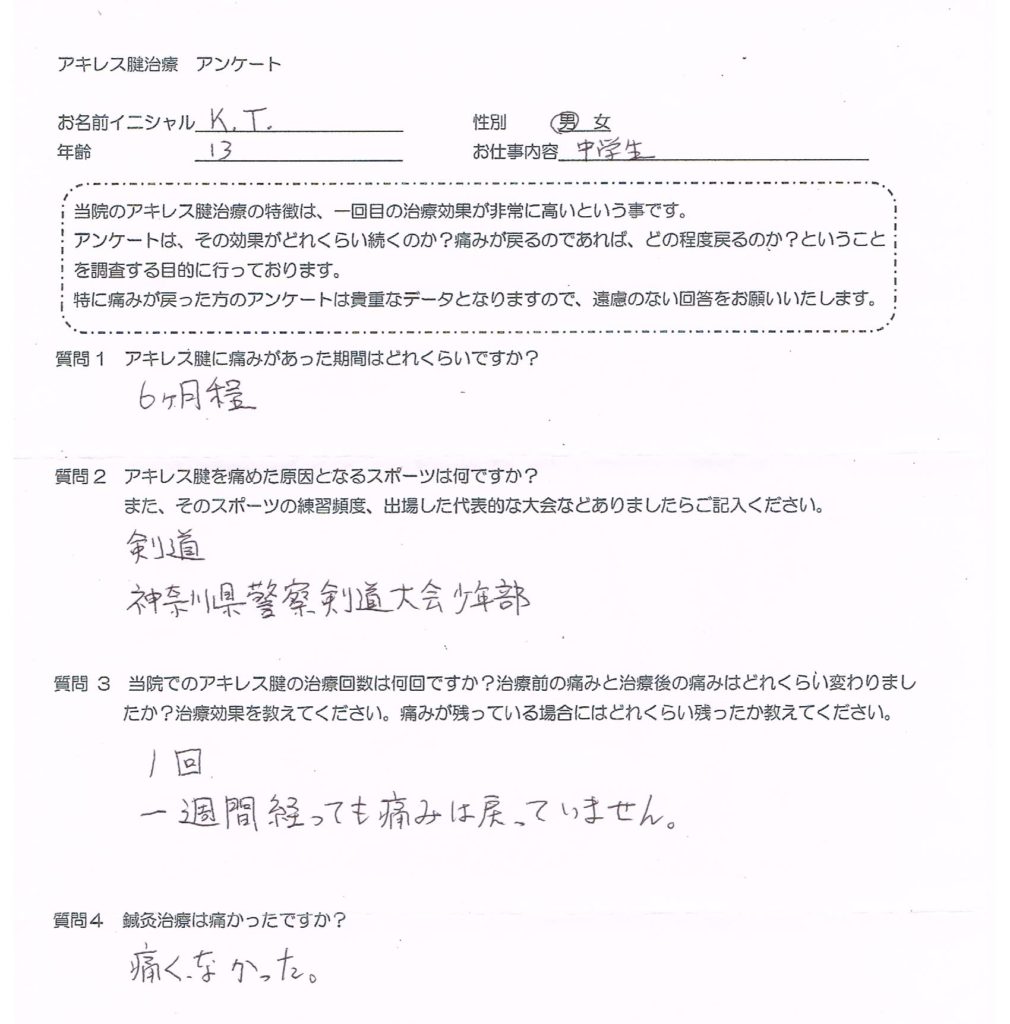 アキレス腱治療　アンケート
お名前イニシャル K.T.　性別　男 女
年齢 13　お仕事内容 中学生
当院のアキレス腱治療の特徴は、一回目の治療効果が非常に高いという事です。
アンケートは、その効果がどれくらい続くのか？痛みが戻るのであれば、どの程度戻るのか？ということ
を調査する目的に行っております。
特に痛みが戻った方のアンケートは貴重なデータとなりますので、遠慮のない回答をお願いいたします。
質問１　アキレス腱に痛みがあった期間はどれくらいですか？
6ヶ月程
質問２　アキレス腱を痛めた原因となるスポーツは何ですか？
また、そのスポーツの練習頻度、出場した代表的な大会などありましたらご記入ください。
剣道
神奈川県警察剣道大会少年部
質問３　当院でのアキレス腱の治療回数は何回ですか？治療前の痛みと治療後の痛みはどれくらい変わりまし
たか？治療効果を教えてください。痛みが残っている場合にはどれくらい残ったか教えてください。
1回
一週間経っても痛みは戻っていません。
質問４　鍼灸治療は痛かったですか？
痛くなかった。